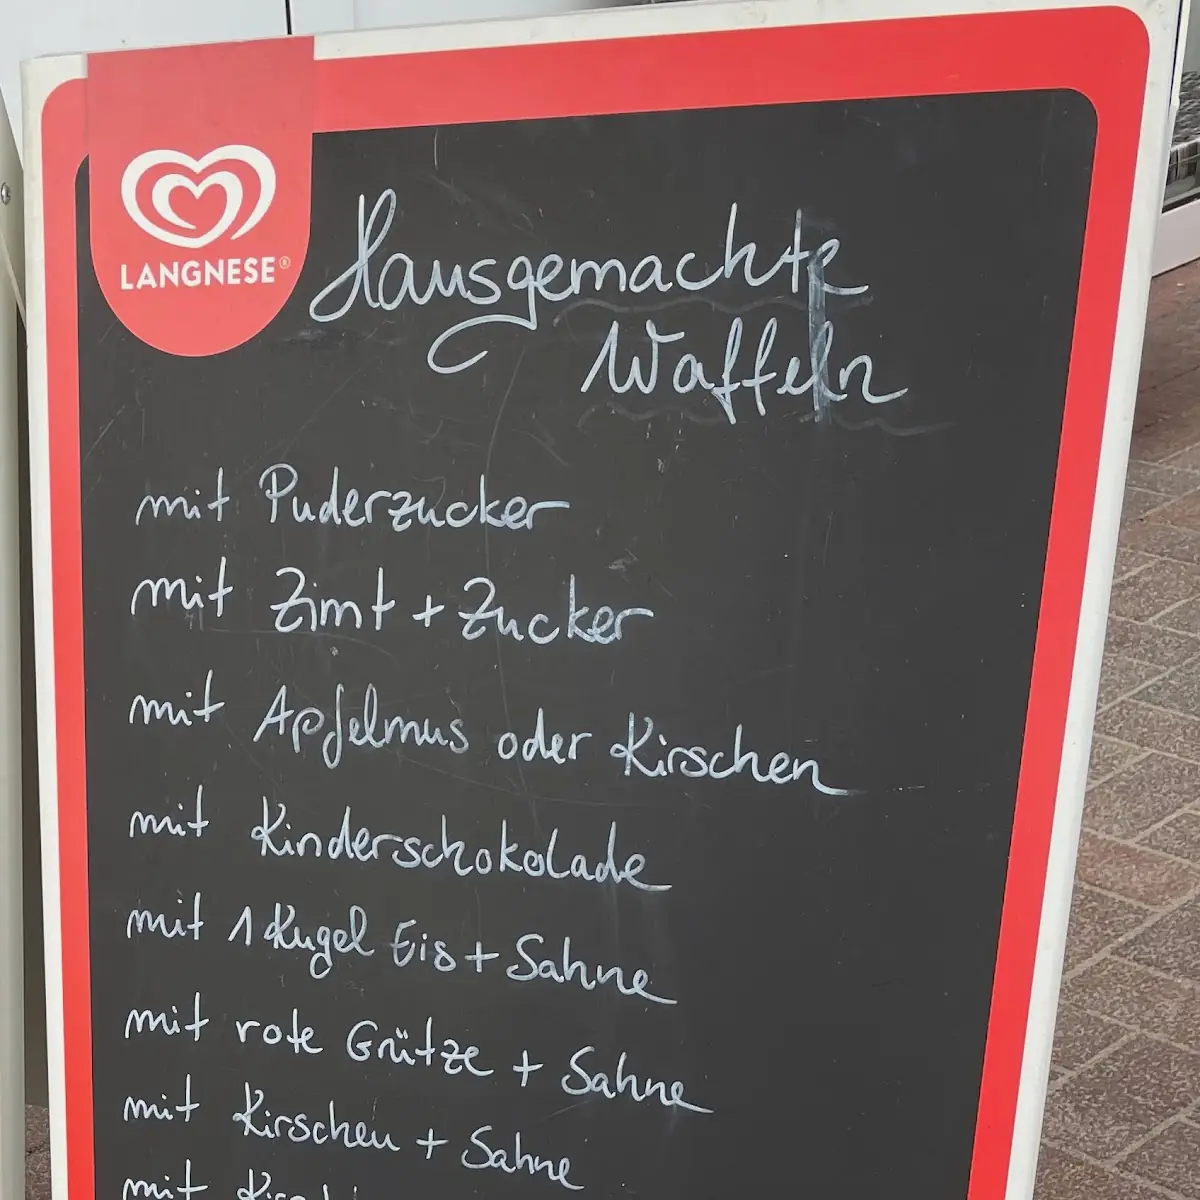 LANGNESE®
Hausgemachte
Waffeln
mit Puderzucker
mit Zimt + Zucker
mit Apfelmus oder Kirschen
mit Kinderschokolade
mit 1 Kugel Eis + Sahne
mit rote Grütze + Sahne
mit Kirschen + Sahne
mit